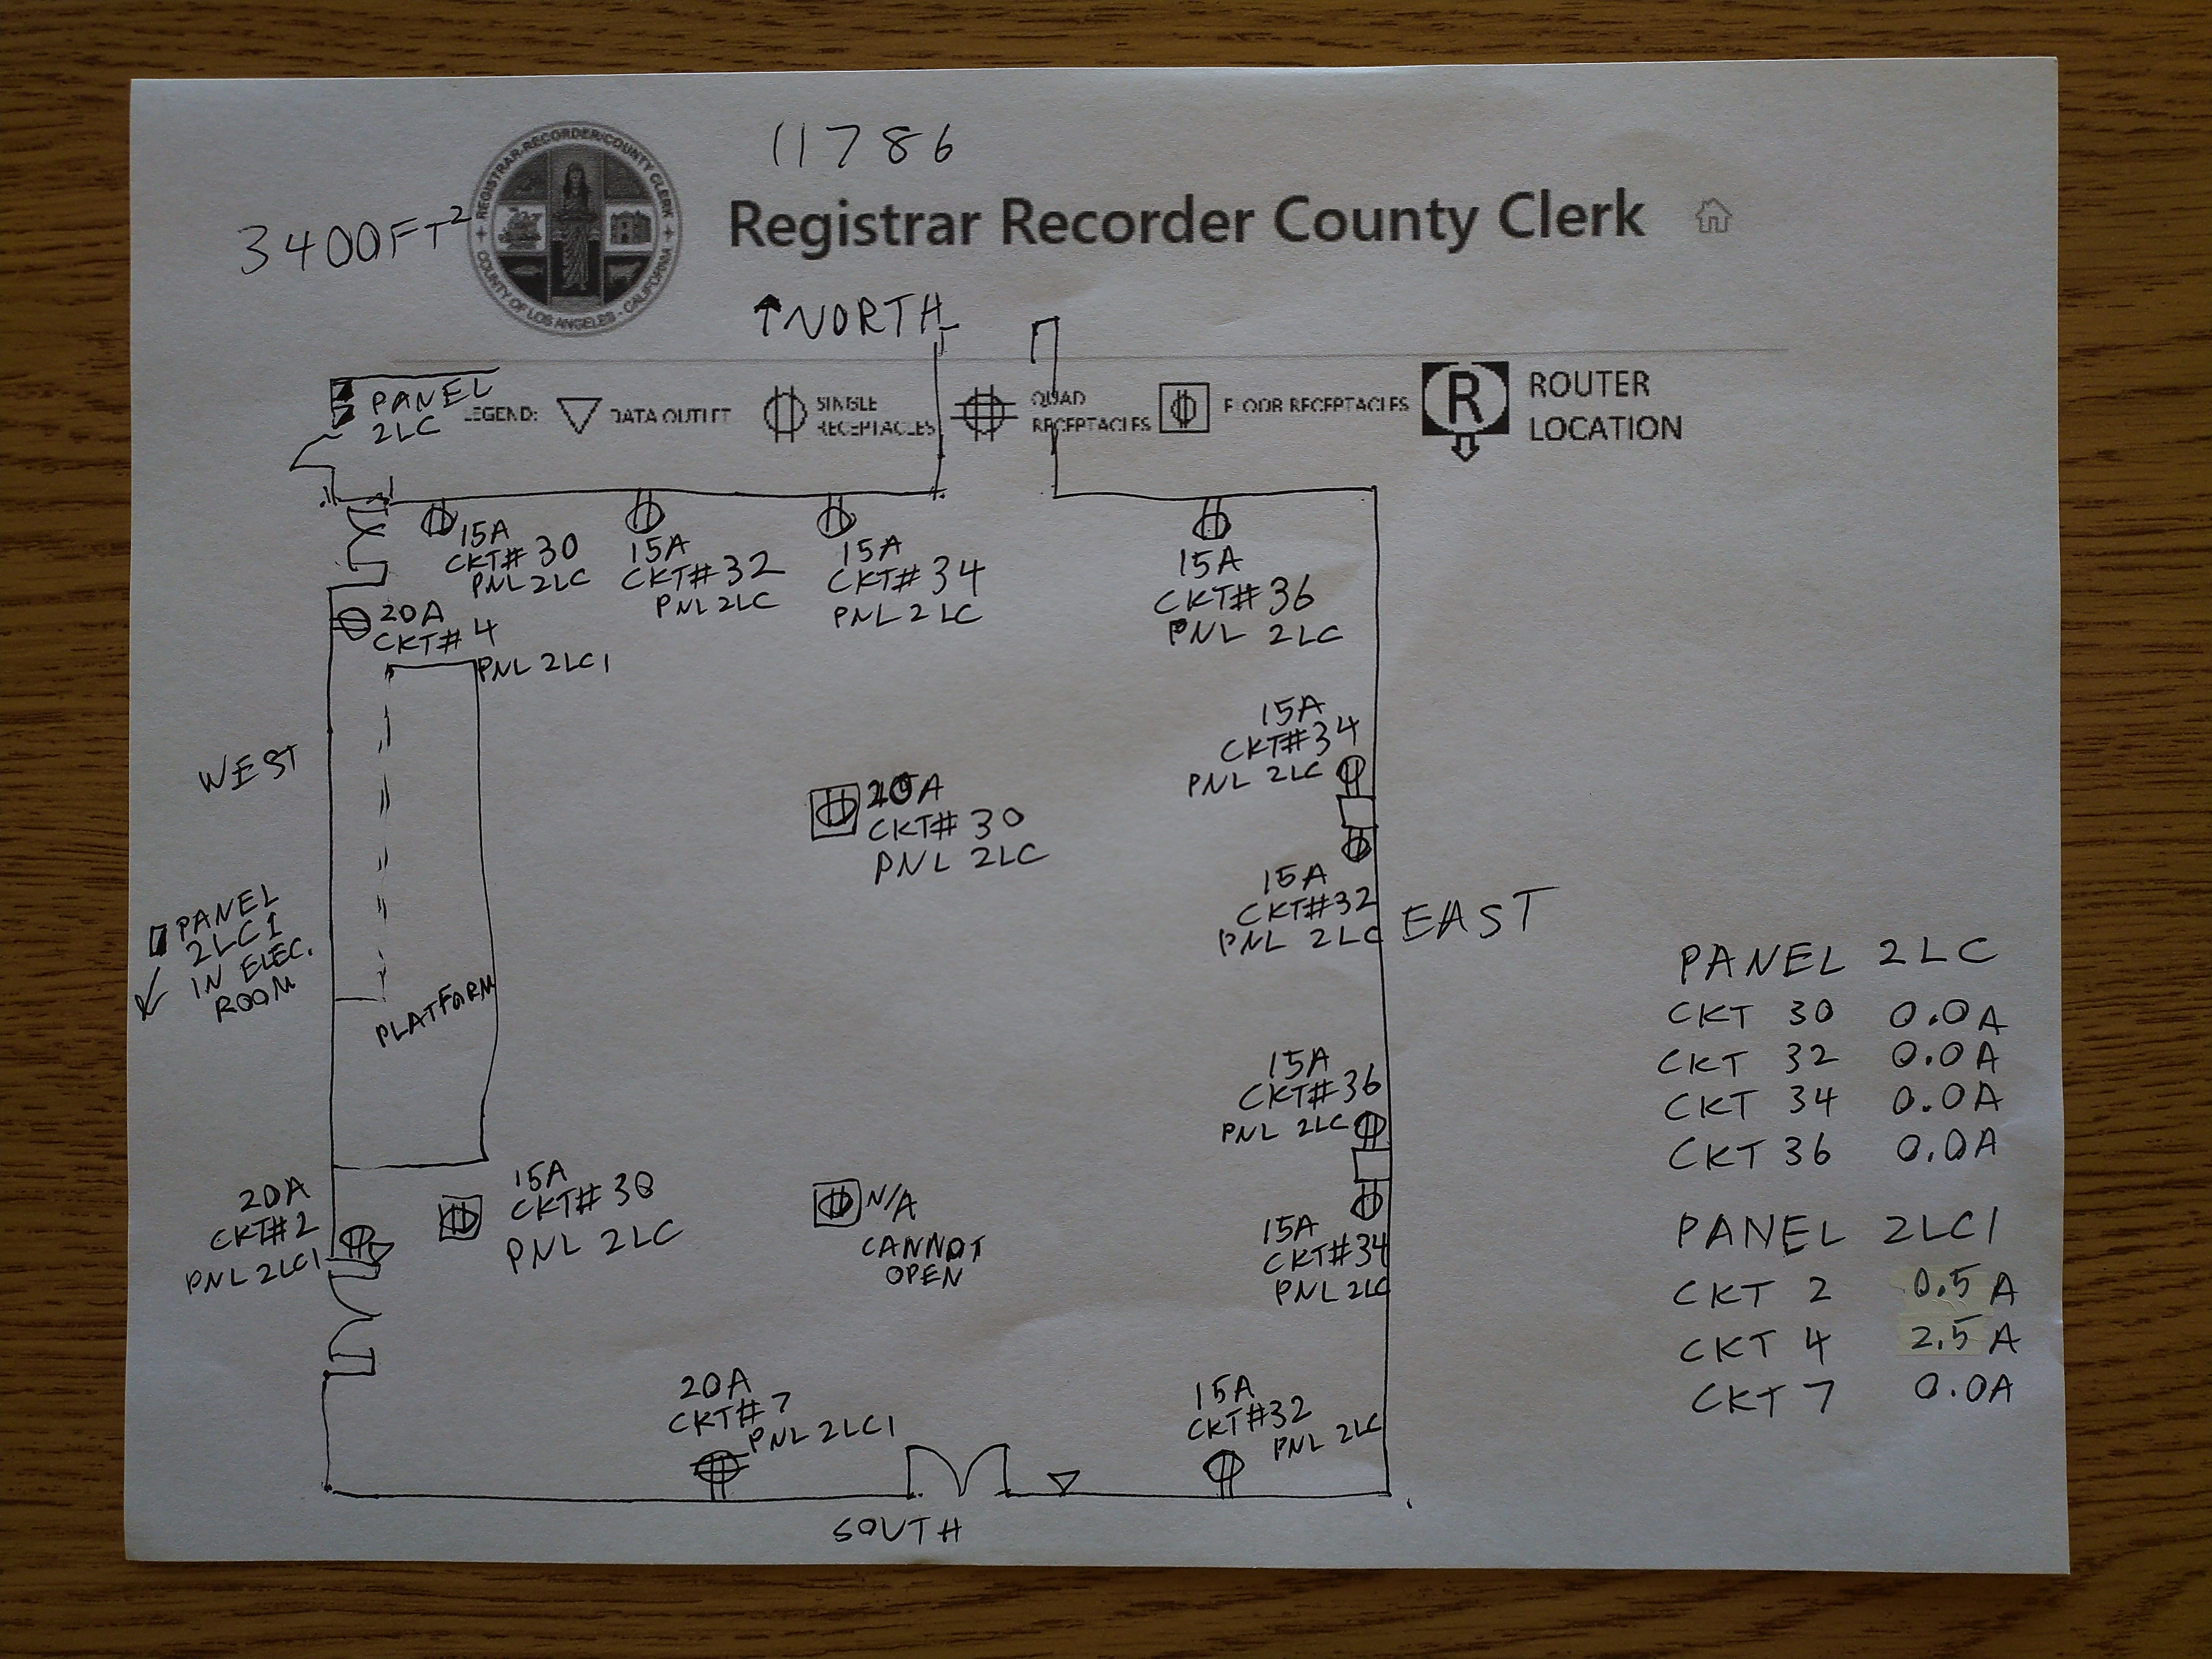 11786
3400FT²
REGISTRAR-RECORDER/COUNTY CLERK
COUNTY OF LOS ANGELES - CALIFORNIA
Registrar Recorder County Clerk
↑NORTH
PANEL
2LC
LEGEND:
DATA OUTLET
SINGLE
RECEPTACLES
QUAD
RECEPTACLES
FLOOR RECEPTACLES
R
ROUTER
LOCATION
15A
CKT# 30
PNL 2LC
15A
CKT# 32
PNL 2LC
15A
CKT# 34
PNL 2LC
15A
CKT# 36
PNL 2LC
20A
CKT# 4
PNL 2LC1
WEST
15A
CKT# 34
PNL 2LC
20A
CKT# 30
PNL 2LC
15A
CKT#32
PNL 2LC
EAST
PANEL
2LC1
IN ELEC.
ROOM
PLATFORM
15A
CKT# 36
PNL 2LC
20A
CKT#2
PNL 2LC1
15A
CKT# 30
PNL 2LC
N/A
CANNOT
OPEN
15A
CKT#34
PNL 2LC
20A
CKT# 7
PNL 2LC1
15A
CKT#32
PNL 2LC
SOUTH
PANEL 2LC
CKT 30 0.0A
CKT 32 0.0A
CKT 34 0.0A
CKT 36 0.0A
PANEL 2LC1
CKT 2 0.5 A
CKT 4 2.5 A
CKT 7 0.0A